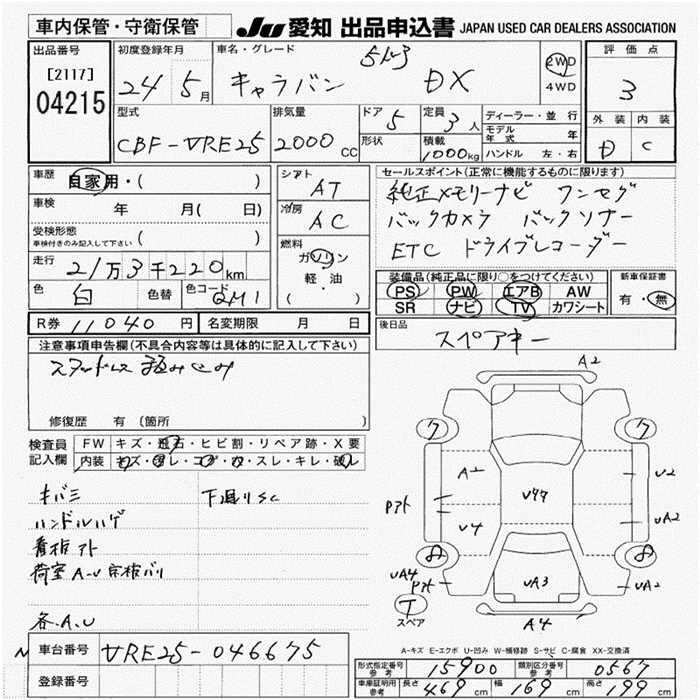 車内保管・守衛保管 JU 愛知 出品申込書 JAPAN USED CAR DEALERS ASSOCIATION
出品番号
[2117]
04215
初度登録年月
24 5月
車名・グレード
キャラバン 5ドア DX
2WD
4WD
評価点
3
外装 内装
D C
型式
CBF-VRE25
排気量
2000cc
ドア 5
形状
定員 3人
積載 1000kg
ディーラー・並行
モデル年式 年
ハンドル 左・右
車歴 自家用・( )
車検 年 月( 日)
受検形態
車検付きのみ記入して下さい ( )
走行 21万3千220km
色 白 色替 色コード QM1
シフト AT
冷房 AC
燃料
ガソリン
軽・油
( )
セールスポイント(正常に機能するものに限ります)
純正メモリーナビ ワンセグ
バックカメラ バックソナー
ETC ドライブレコーダー
装備品(純正品に限り○をつけてください)
PS PW エアB AW
SR ナビ TV カワシート
新車保証書
有・無
R券 11040円 名変期限 月 日
後日品
スペアキー
注意事項申告欄(不具合内容等は具体的に記入して下さい)
スタッドレス 積みこみ
修復歴 有 〔箇所 〕
検査員記入欄
FW キズ・飛石・ヒビ割・リペア跡・X要
内装 キズ・汚レ・コゲ・穴・スレ・キレ・破レ
キバミ 下廻りSC
ハンドルハゲ
看板アト
荷室A-U 床板バリ
各A、U
A2
ワ ワ
A2 U2
Pアト U44
U4 UA2
8 8
UA4 Pアト UA3 UA2
T
スペア
A4
A-キズ E-エクボ U-凹み W-補修跡 S-サビ C-腐食 XX-交換済
車台番号 VRE25-046675
登録番号
形式指定番号 参考 15900 類別区分番号 参考 0567
車庫証明用 参考 長さ 469cm 幅 169cm 高さ 199cm